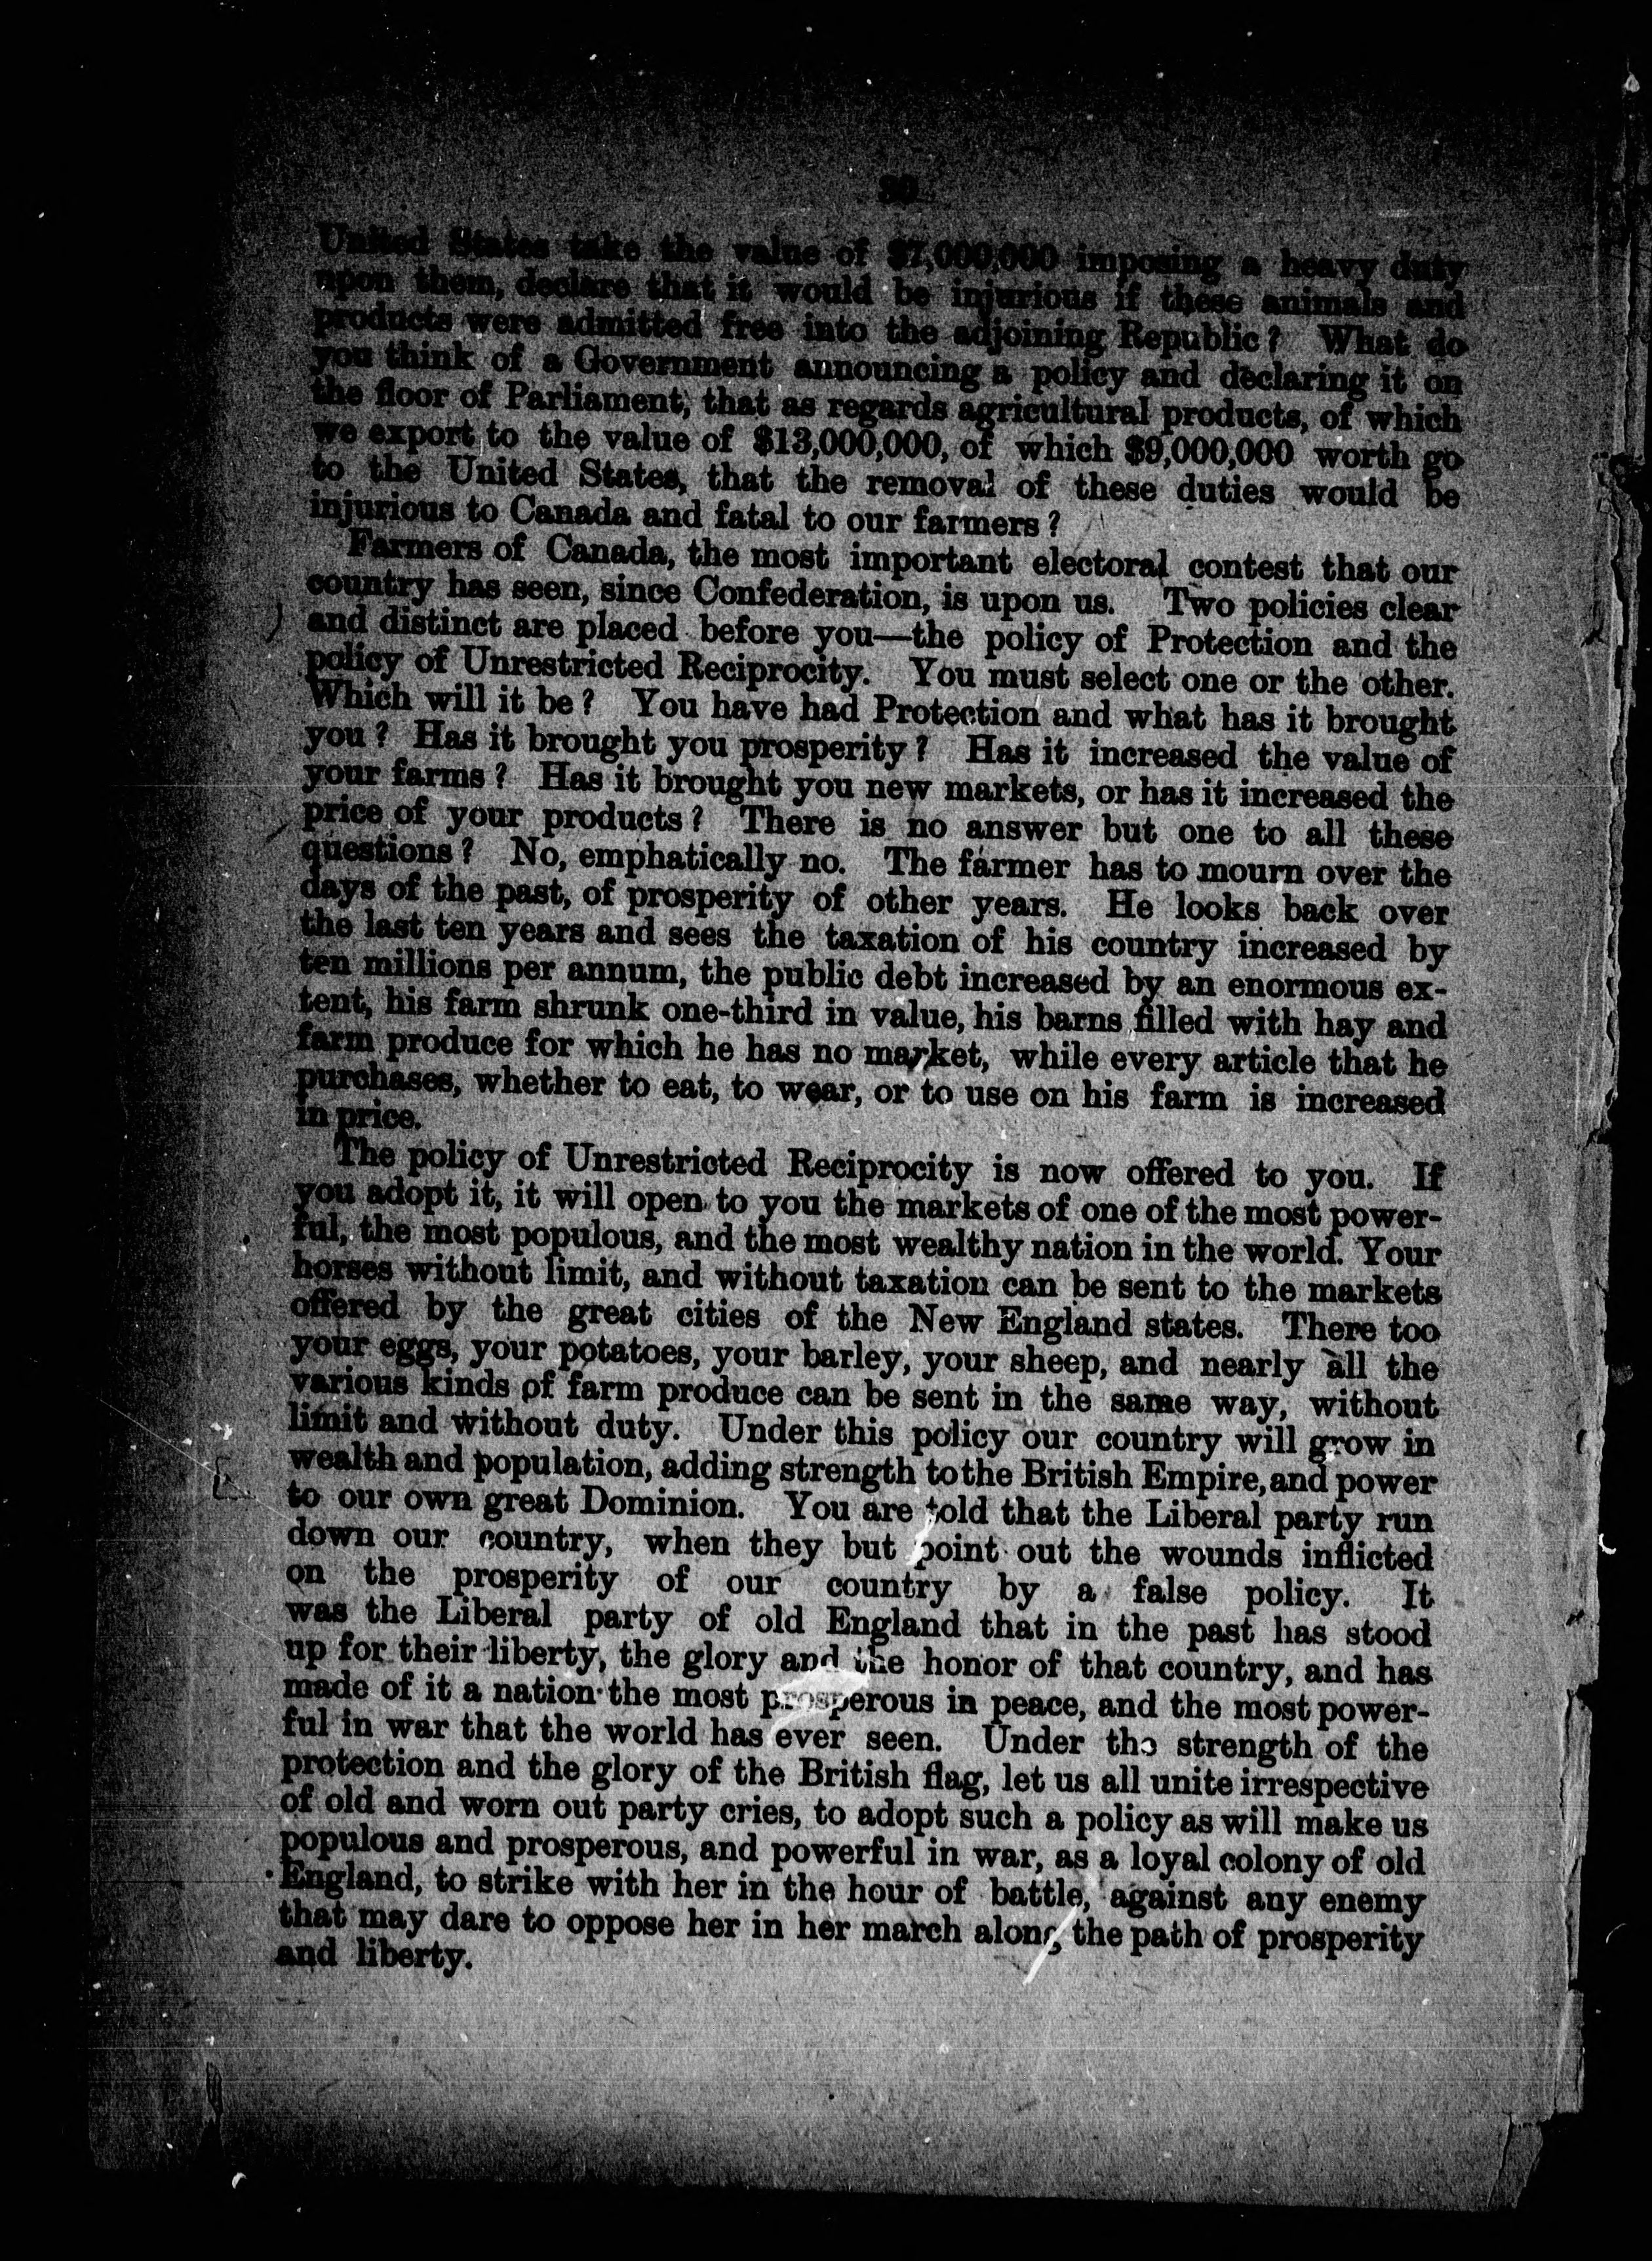 30
United States take the value of $7,000,000 imposing a heavy duty
upon them, declare that it would be injurious if these animals and
products were admitted free into the adjoining Republic? What do
you think of a Government announcing a policy and declaring it on
the floor of Parliament, that as regards agricultural products, of which
we export to the value of $13,000,000, of which $9,000,000 worth go
to the United States, that the removal of these duties would be
injurious to Canada and fatal to our farmers?
Farmers of Canada, the most important electoral contest that our
country has seen, since Confederation, is upon us. Two policies clear
and distinct are placed before you—the policy of Protection and the
policy of Unrestricted Reciprocity. You must select one or the other.
Which will it be? You have had Protection and what has it brought
you? Has it brought you prosperity? Has it increased the value of
your farms? Has it brought you new markets, or has it increased the
price of your products? There is no answer but one to all these
questions? No, emphatically no. The farmer has to mourn over the
days of the past, of prosperity of other years. He looks back over
the last ten years and sees the taxation of his country increased by
ten millions per annum, the public debt increased by an enormous ex-
tent, his farm shrunk one-third in value, his barns filled with hay and
farm produce for which he has no market, while every article that he
purchases, whether to eat, to wear, or to use on his farm is increased
in price.
The policy of Unrestricted Reciprocity is now offered to you. If
you adopt it, it will open to you the markets of one of the most power-
ful, the most populous, and the most wealthy nation in the world. Your
horses without limit, and without taxation can be sent to the markets
offered by the great cities of the New England states. There too
your eggs, your potatoes, your barley, your sheep, and nearly all the
various kinds of farm produce can be sent in the same way, without
limit and without duty. Under this policy our country will grow in
wealth and population, adding strength to the British Empire, and power
to our own great Dominion. You are told that the Liberal party run
down our country, when they but point out the wounds inflicted
on the prosperity of our country by a false policy. It
was the Liberal party of old England that in the past has stood
up for their liberty, the glory and the honor of that country, and has
made of it a nation the most prosperous in peace, and the most power-
ful in war that the world has ever seen. Under the strength of the
protection and the glory of the British flag, let us all unite irrespective
of old and worn out party cries, to adopt such a policy as will make us
populous and prosperous, and powerful in war, as a loyal colony of old
England, to strike with her in the hour of battle, against any enemy
that may dare to oppose her in her march along the path of prosperity
and liberty.